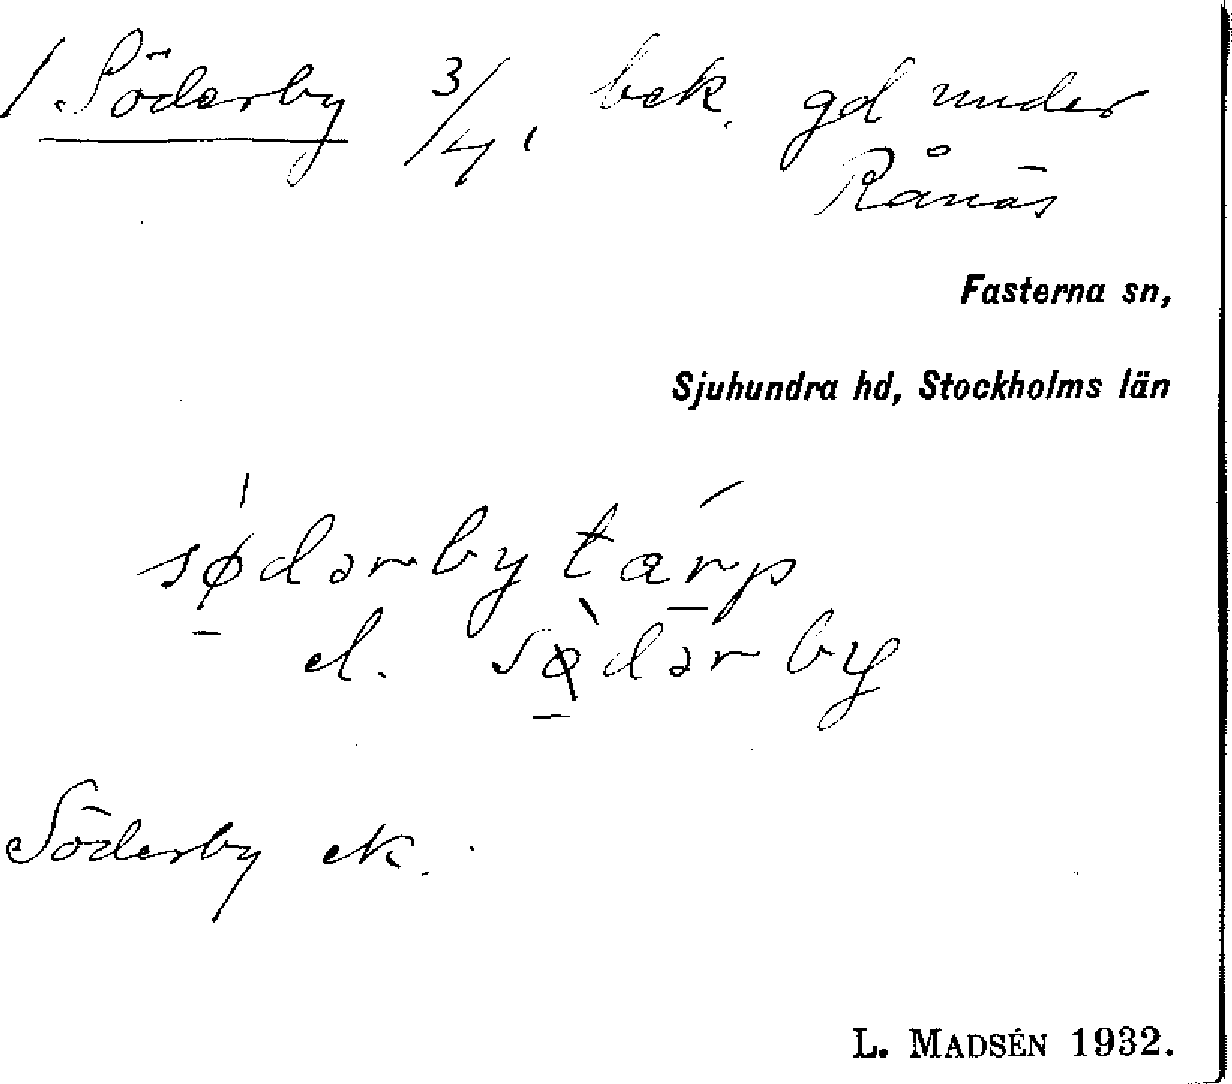 1 Söderby 3/4, bek. gd under
Rånäs
Fasterna sn,
Sjuhundra hd, Stockholms län
sø̱dərby tæṟp
el. sø̱dərby
Söderby ek.
L. MADSÉN 1932.